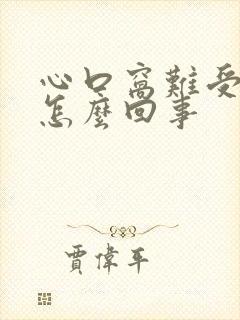 心口窩難受
怎麼回事
賈偉平